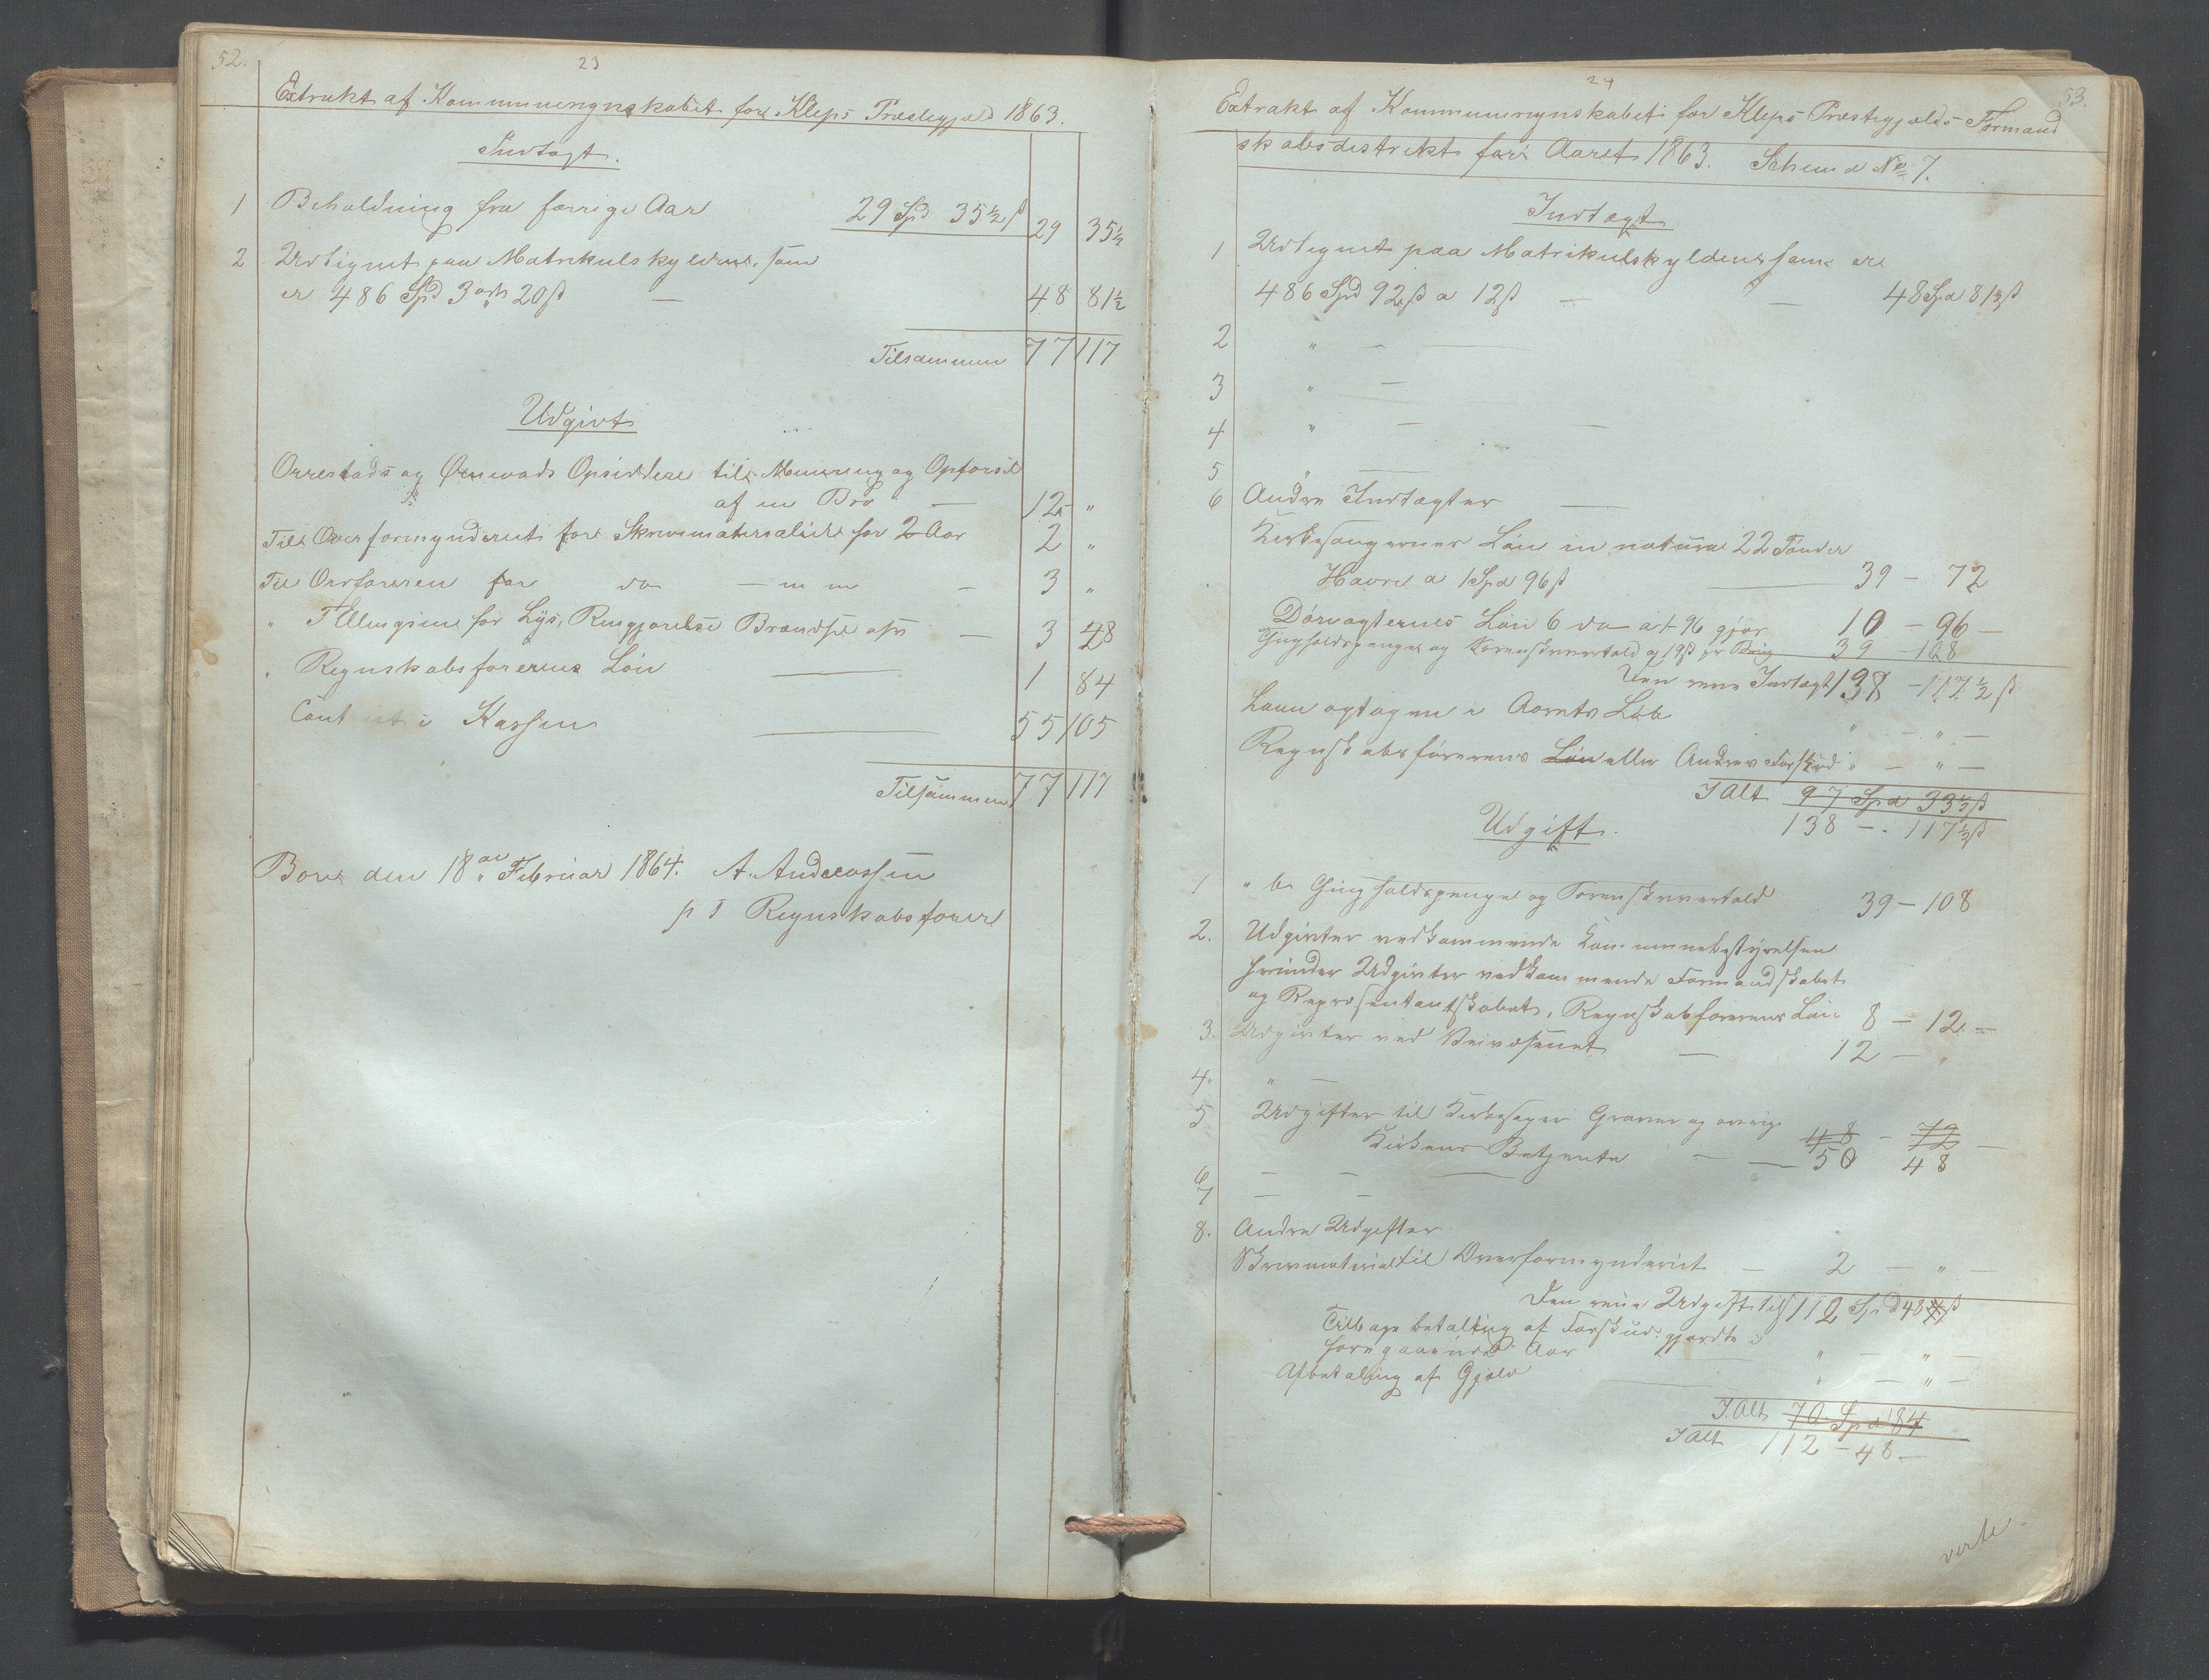 52.
23
Extrakt af Kommuneregnskabet for Kleps Præstegjæld 1863.
Indtægt.
1 Beholdning fra forrige Aar 29 Spd 35½ ß 29 35½
2 Udlignet paa Matrikulskylden, som
er 486 Spd 3 ort 20 ß — 48 81½
Tilsammen 77 117
Udgivt
Orrestads og Ørevads Opsiddere til Muring og Opførsel
af en Bro — 12 "
Til Overformynderiet for Skrivematerialier for 2 Aar 2 "
Til Ordføreren for do — — 3 "
" Tellingsens for Lys, Rengjørelse Brændsel — 3 48
" Regnskabsførerens Løn — 1 84
Contant i Kassen — 55 105
Tilsammen 77 117
Bore den 18de Februar 1864. A. Andreassen
p t Regnskabsfører
24
53.
Extrakt af Kommuneregnskabet for Kleps Præstegjelds Formand
skabsdistrikt for Aaret 1863. Schema No 7.
Indtægt
1 Udlignet paa Matrikulskylden som er
486 Spd 92 ß a 12 ß — — 48 Spd 81½ ß
2 " — —
3 " —
4 " — —
5 " —
6 Andre Indtægter —
Kirkesangernes Løn in natura 22 Tønder
Havre a 1 Spd 96 ß — 39 — 72
Dørvagternes Løn 6 do a 1-96 gjør 10 — 96 —
Thingholdspenge og Sorenskrivertold 39 — 108
Den rene Indtægt 138 — 117½ ß
Laan optagen i Aarets Løb " — " —
Regnskabsførerens Løn eller Andres Forskud " — " —
I Alt 97 Spd 33½ ß
138 — 117½ ß
Udgift.
1 " Thingholdspenge og Sorenskrivertold 39 — 108
2. Udgivter vedkommende Kommunebestyrelsen
herunder Udgivter vedkommende Formandskabet
og Repræsentantskabet, Regnskabsførerens Løn 8 — 12 —
3. Udgivter ved Veivæsenet — 12 — "
4. " —
5 Udgifter til Kirkesanger Graver og øvrige 48 — 72 —
Kirkens Betjente — — 50 48
6 — — —
7 — —
8. Andre Udgifter
Skrivmateriel til Overformynderiet — 2 — " —
Den rene Udgift til 112 Spd 48 ß
Tilbage betaling af Forskud gjordte i
foregaaende Aar — " — " —
Afbetaling af Gjæld — " — " —
I Alt 70 Spd 84
I Alt 112 — 48 —
verte.